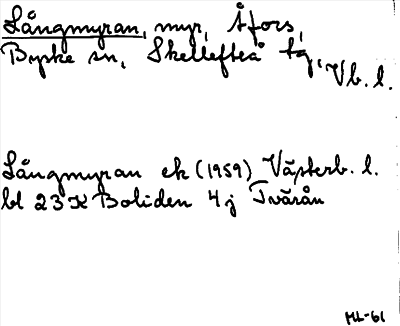 Långmyran, myr, Åfors,
Byske sn, Skellefteå tg, Vb. l.
Långmyran ek (1959) Västerb. l.
bl 23 K Boliden 4 j Tvärån
ML-61